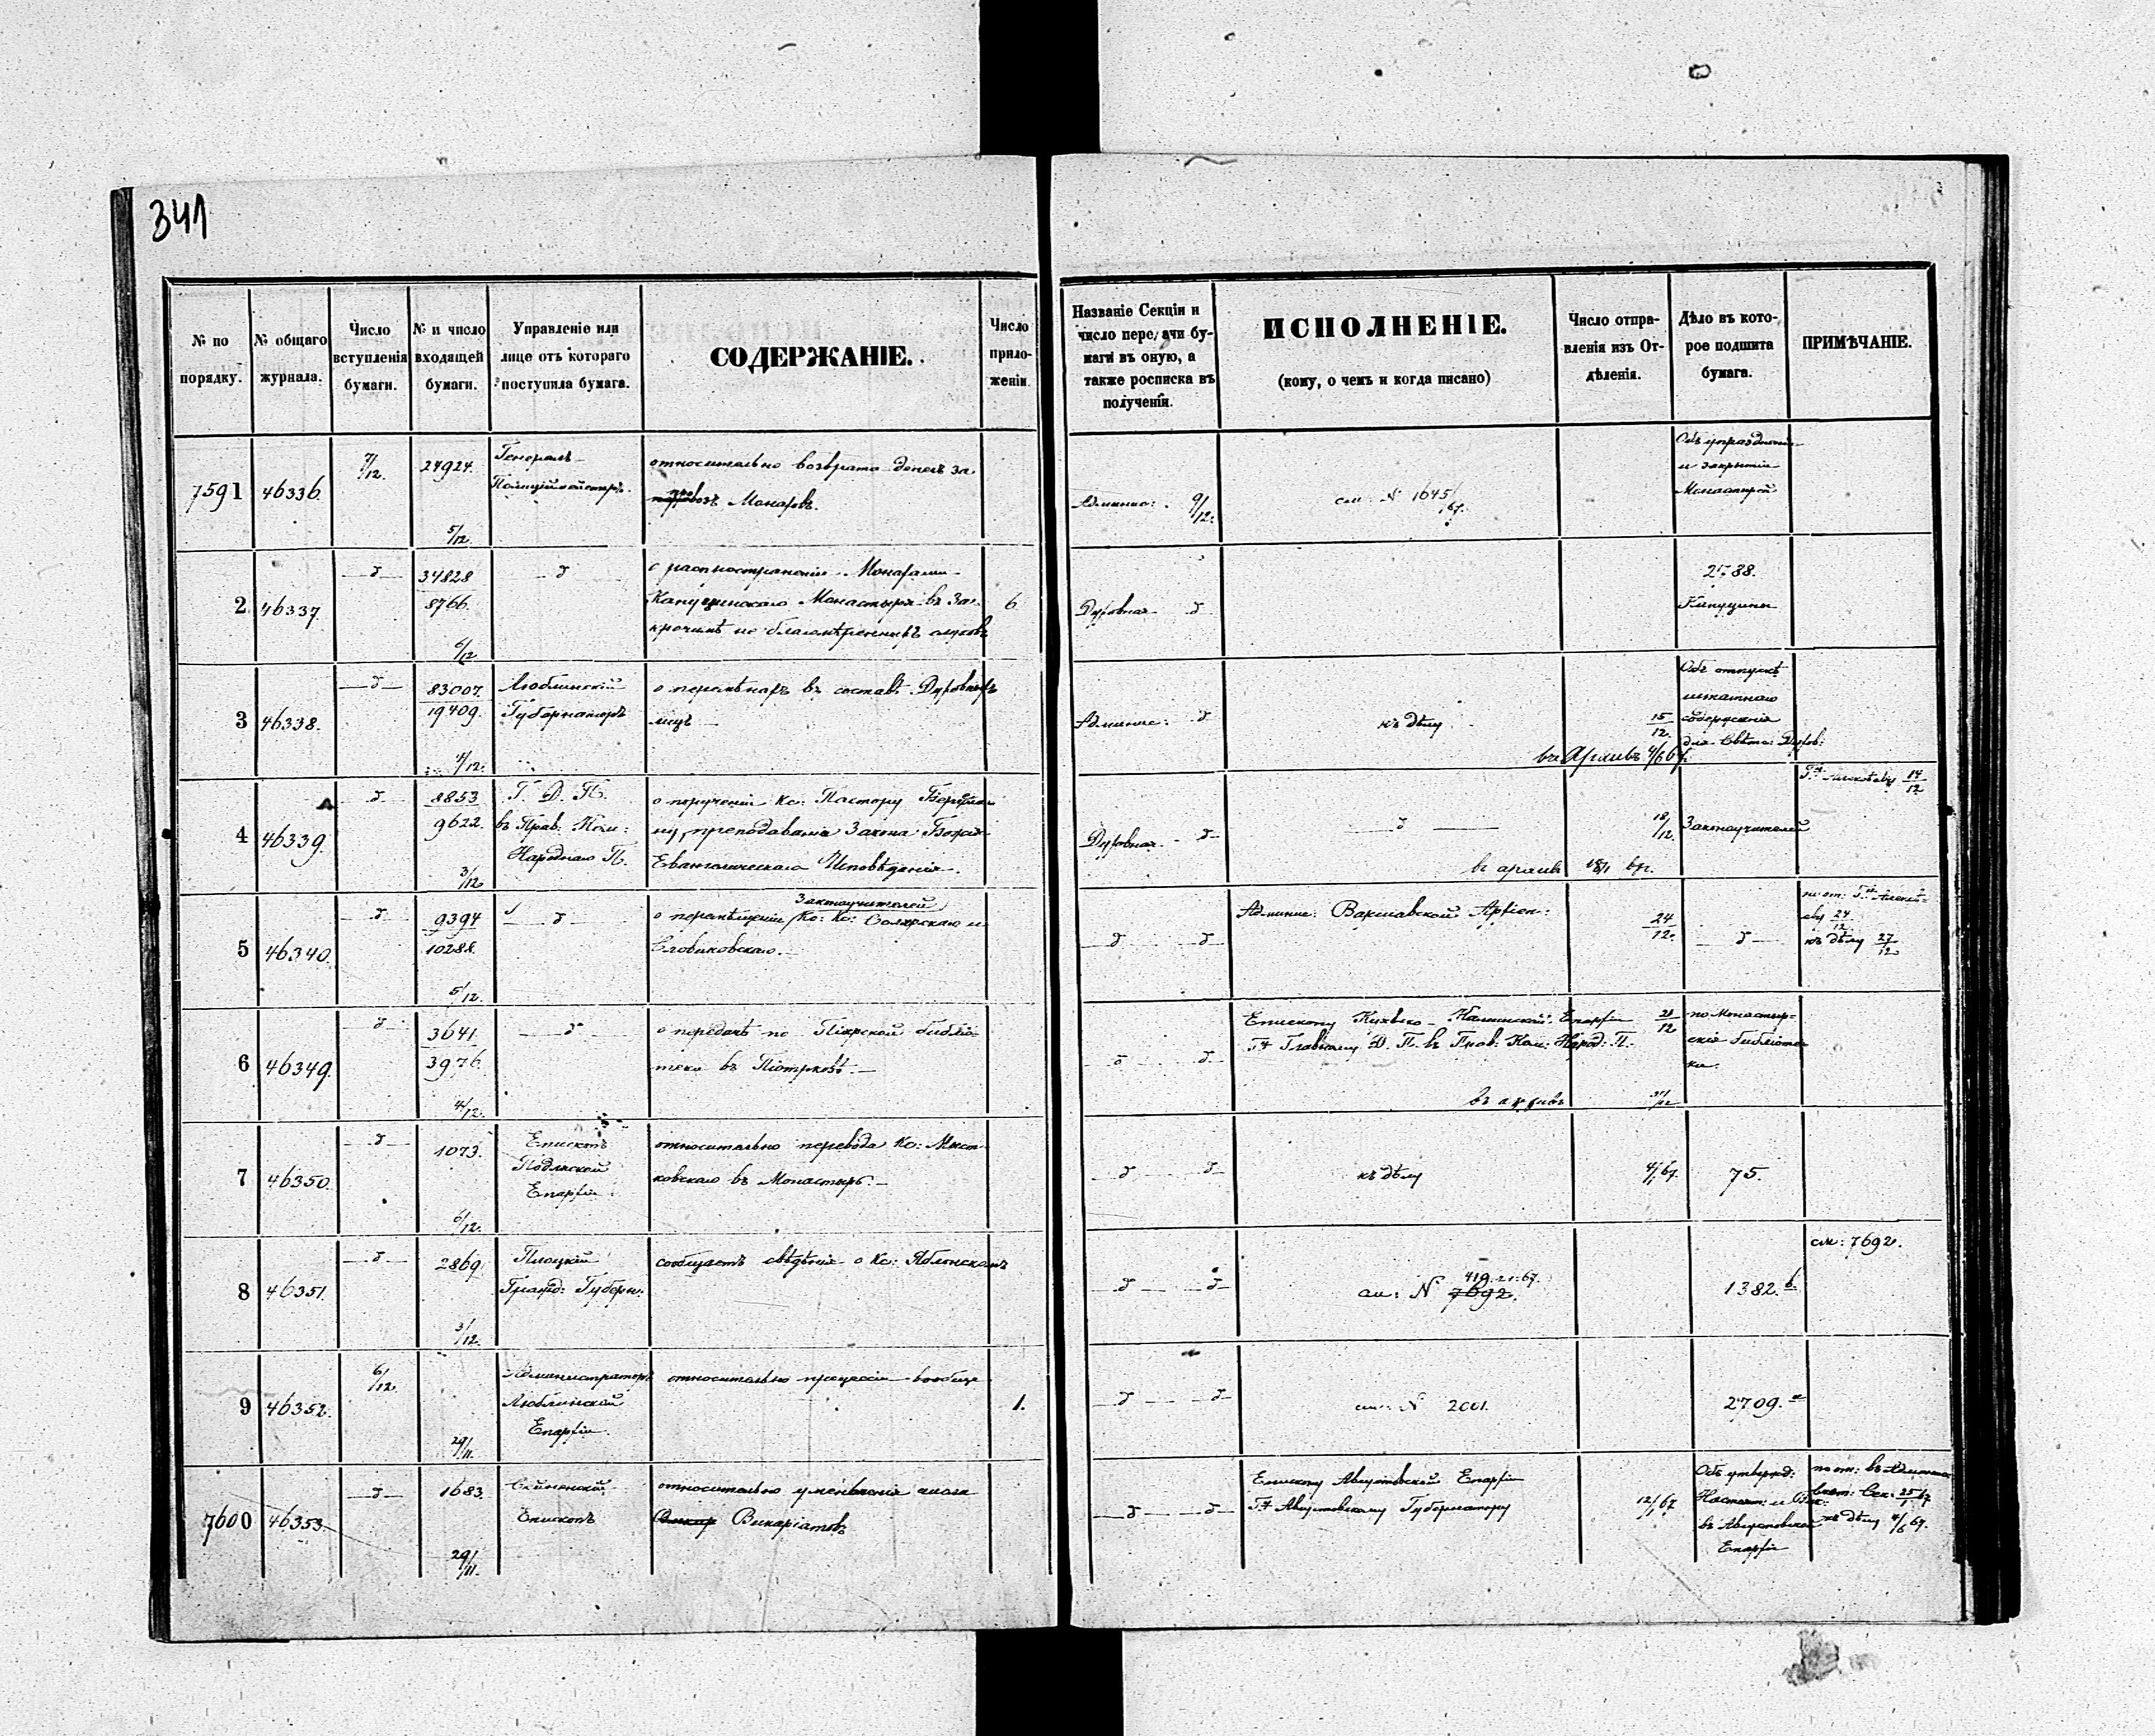 341
№ по порядку.
№ общаго журнала.
Число вступленія бумаги.
№ и число входящей бумаги.
Управленіе или лице отъ котораго поступила бумага.
СОДЕРЖАНІЕ.
Число приложеніи.
Названіе Секціи и число передачи бумаги въ оную, а также росписка въ полученіи.
ИСПОЛНЕНІЕ.
(кому, о чемъ и когда писано)
Число отправленія изъ Отдѣленія.
Дѣло въ которое подшита бумага.
ПРИМѢЧАНІЕ.
7591 46336. 7/12. 24924. 5/12.
Генералъ-
Полиціймейстеръ.
относительно возврата денегъ за
провозъ Монаховъ.
Админис: 9/12.
см. № 1645/67.
Объ упраздненіи
и закрытіи
Монастырей
2 46337. д 34828 8766. 6/12 д
о распространеніи Монахами
Капуцинскаго Монастыря въ За-
крочимѣ не благонамѣренныхъ слуховъ
6
Духовная д
2788.
Капуцины
3 46338. д 83007. 19409. 4/12.
Люблинскій
Губернаторъ
о перемѣнахъ въ составѣ Духовныхъ
лицъ
Админис: д
къ дѣлу
15/12.
въ Архивъ 4/6 67.
Объ отпускѣ
штатнаго
содержанія
для Свѣтс: Духов:
4 46339. д 8853 9622. 3/12
Г. Д. П.
въ Прав. Ком:
Народнаго П.
о порученіи Кс: Пастору
преподаванія Закона Божія
Евангелическаго Исповѣданія.
Духовная д
д
18/12.
въ архивъ 18/1 67г.
Законоучителей
14/12
5 46340. д 9394 10288. 5/12. д
Законоучителей
о перемѣщеніи Кс: Кс: и
д д
Админис: Варшавской Архіеп:
24/12.
д
24/12
къ дѣлу 27/12
6 46349. д 3641 3976. 4/12. д
о передачѣ по Піярской библіо-
теки въ Піотрковѣ.
д д
Епископу Куявско-Калишской Епархіи 21/12
Гну Главному Д. П. въ Прав: Ком: Народ: П.
въ архивъ 31/12
по Монастыр-
скія библіоте-
ки.
7 46350. д 1073. 6/12.
Епископъ
Подляской
Епархіи
относительно перевода Кс:
ковскаго въ Монастырь.
д д
къ дѣлу
4/1 67.
75.
8 46351. д 2869. 3/12.
Плоцкій
Гражд: Губерн:
сообщаетъ свѣдѣнія о Кс: Яблонскомъ
д д
419. 21. 67.
см: № 7692.
1382. б
см: 7692.
9 46352. 6/12. 29/11.
Администраторъ
Люблинской
Епархіи.
относительно процессіи вообще
1.
д д
см: № 2001.
2709. а
7600 46353. д 1683. 29/11.
Сейненскій
Епископъ
относительно уменьшенія числа
Викар Викаріатовъ
д д
Епископу Августовской Епархіи
Гну Августовскому Губернатору
12/1 67
Объ утвержд:
Настоят: и Вик:
въ Августовской
Епархіи
25/1 67
къ дѣлу 4/6 67.